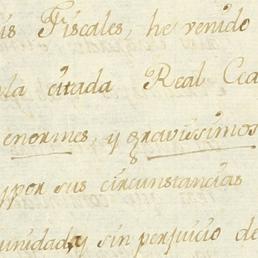 is Fiscales, he venido
la citada Real Ced
enormes, y gravissimos
y por sus circunstancias
unidad, y sin perjuicio de